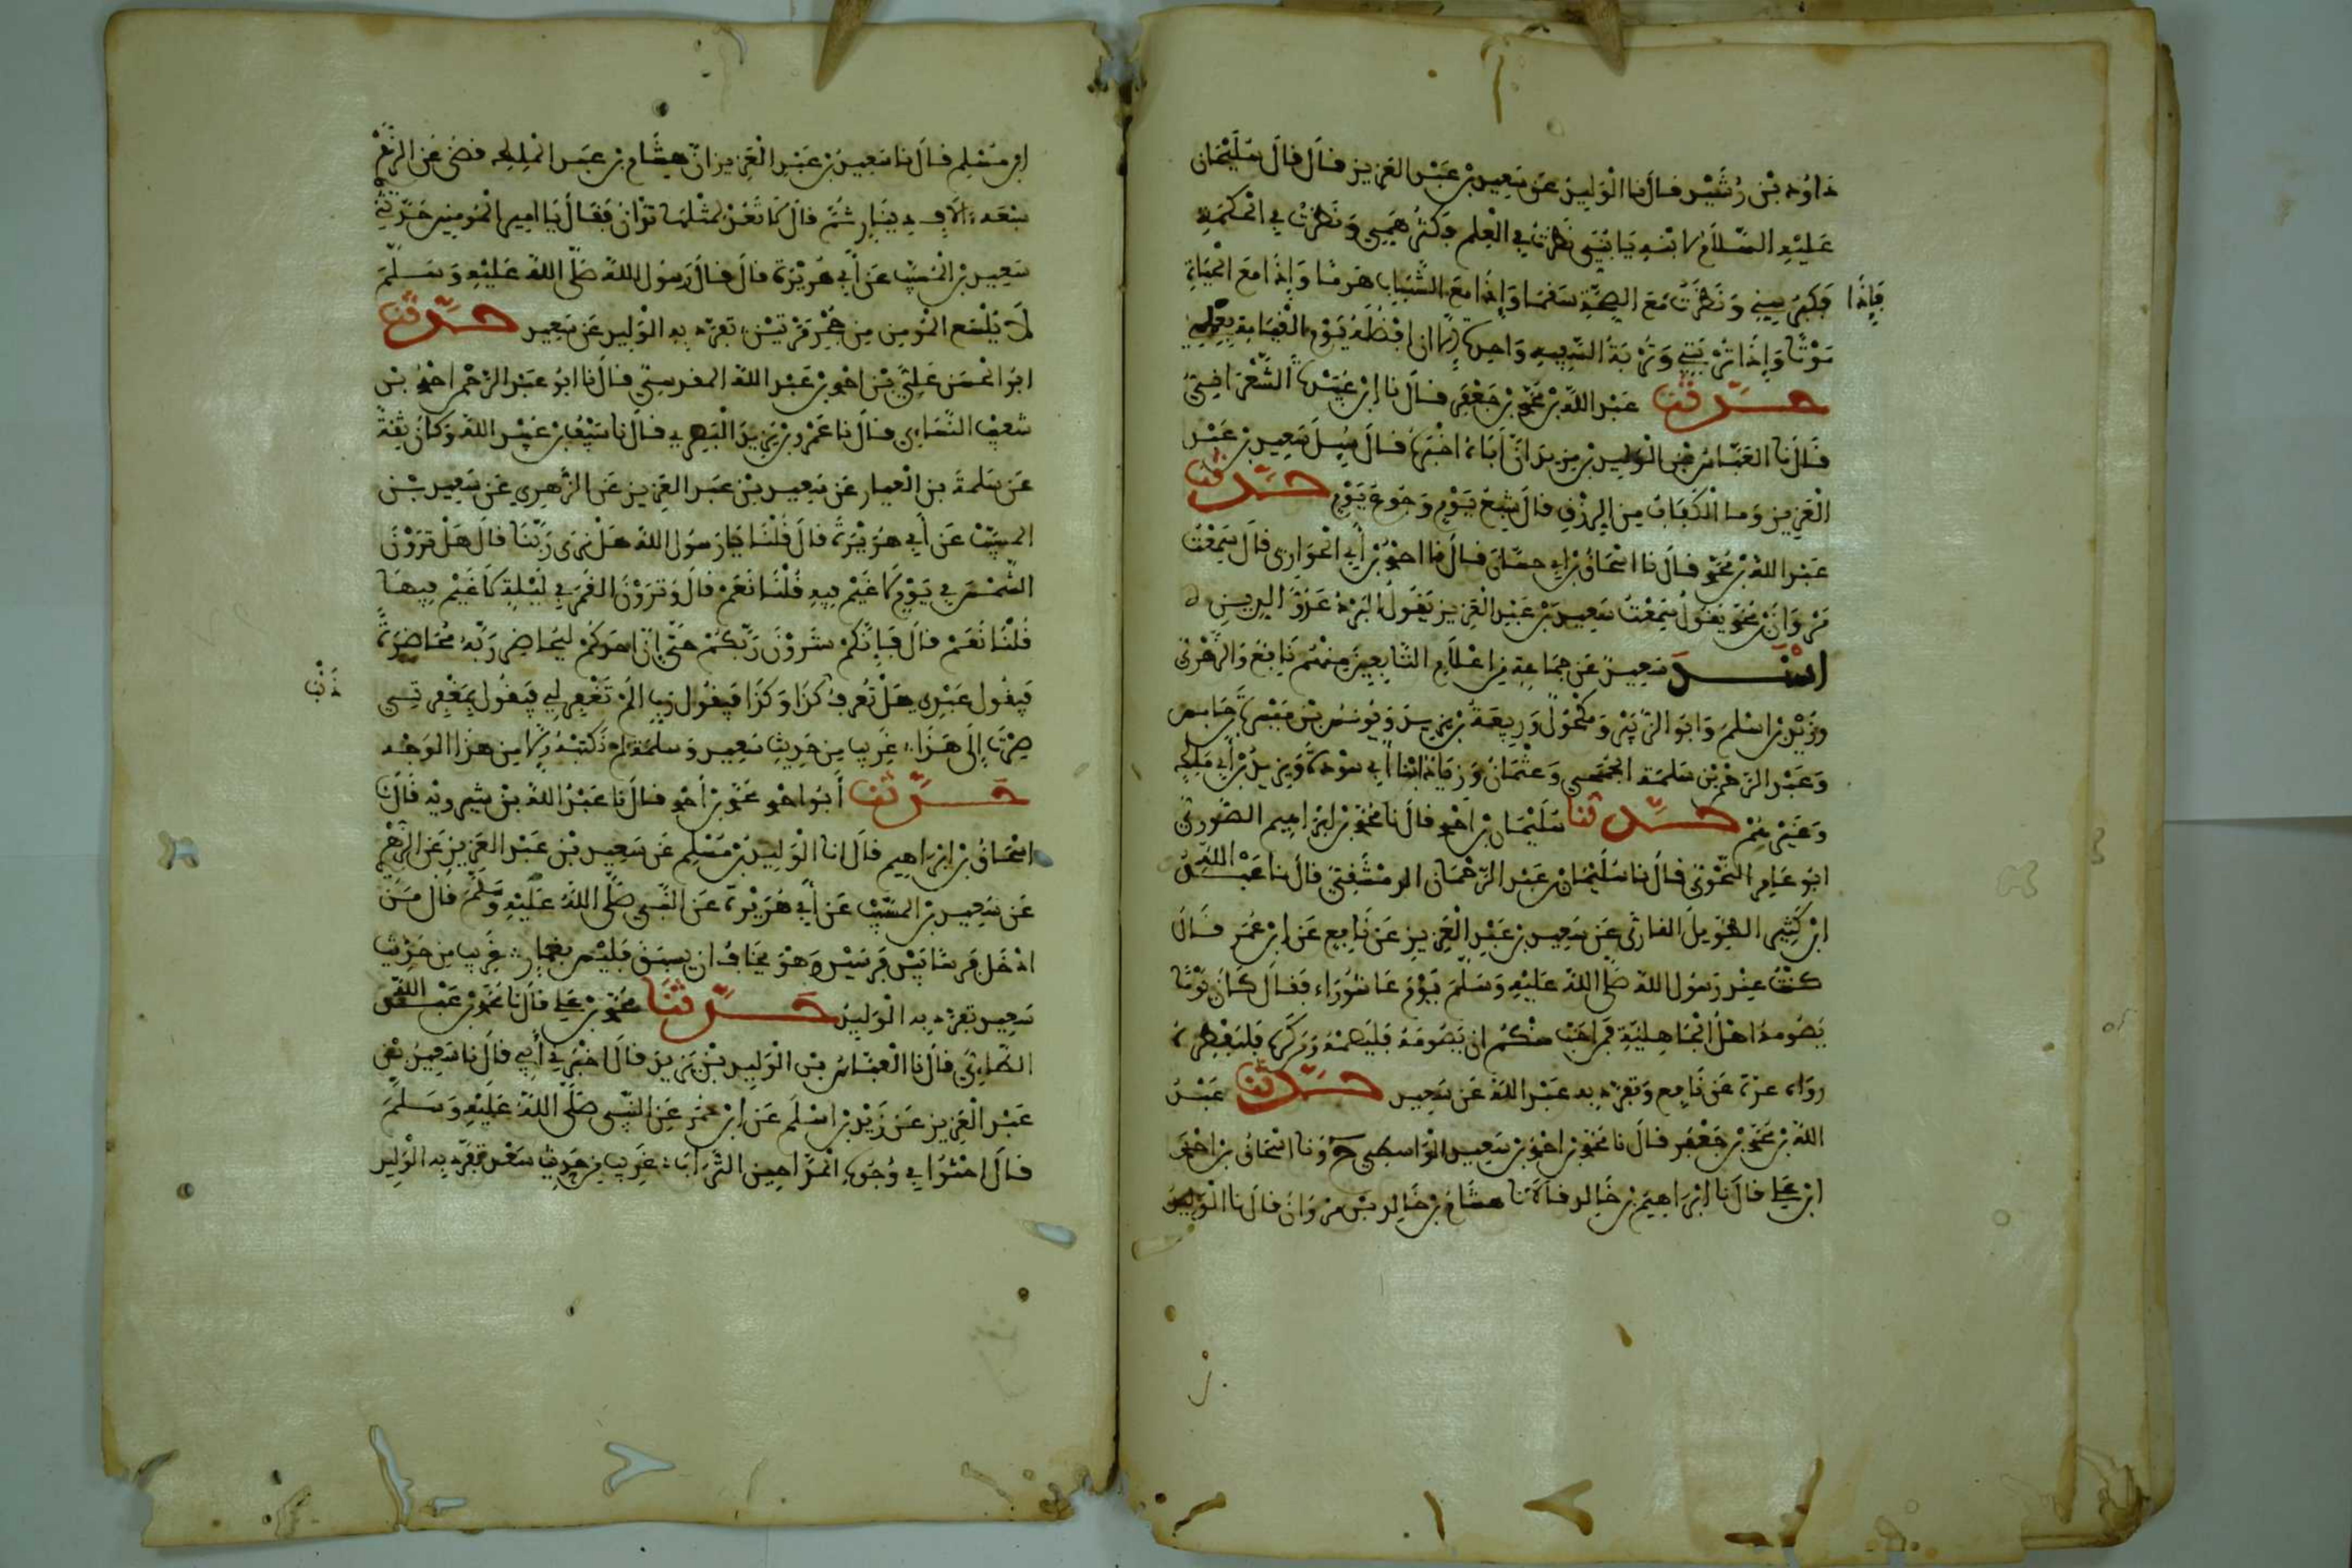 داود بن رشيد قال نا الوليد عن سعيد بن عبد العزيز قال قال سليمان
عليه السلام لابنه يا بني نظرت في العلم فكثر همي ونظرت في الحكمة
فكبر سني ونظرت مع الصحة سقما وإذا مع الشباب هرما وإذا مع الحياة
فإذا
موتا وإذا تربتي وتربة السفيه واحدة إلا ان افضله يوم القيامة بعملي
حدثنا عبد الله بن محمد بن جعفر قال نا
قال نا العباس بن الوليد بن مزيد ان أباه اخبره قال سيل سعيد بن عبد
العزيز وما الكفاف من الرزق قال شبع يوم وجوع يوم حدثنا
عبد الله بن محمد قال نا اسحاق بن ابي حسان قال نا احمد بن أبي الحواري قال سمعت
مروان بن محمد يقول سمعت سعيد بن عبد العزيز يقول
اسند سعيد عن جماعة من اعلام التابعين منهم نافع والزهري
وزيد بن اسلم وابو الزبير ومكحول وربيعة بن يزيد ويونس بن ميسرة بن حلبس
وعبد الرحمن بن سلمة الجمحي وعثمان وزياد ابنا أبي سودة ويزيد بن أبي ملك
وغيرهم حدثنا سليمان بن أحمد قال نا محمد بن ابراهيم الصوري
ابو عامر النحوي قال نا سليمان بن عبد الرحمان الدمشقي قال نا عبد الله
ابن كثير الطويل القاري عن سعيد بن عبد العزيز عن نافع عن ابن عمر قال
كنت عند رسول الله صلى الله عليه وسلم يوم عاشوراء فقال كان يوما
يصومه اهل الجاهلية فمن احب منكم ان يصومه فليصمه ومن كره فليفطره
رواه عدة عن نافع وتفرد به عبد الله عن سعيد حدثنا عبد
الله بن محمد بن جعفر قال نا محمد بن احمد بن سعيد الواسطي ح ونا اسحاق بن احمد
ابن علي قال نا ابراهيم بن خالد قالا نا هشام بن خالد بن مروان قال نا الوليد
ابن مسلم قال نا سعيد بن عبد العزيز ان هشام بن عبد الملك قضى عن الزهري
سبعة الاف دينار ثم قال لا تعد لمثلها تدان فقال يا امير المومنين حدثني
سعيد بن المسيب عن أبي هريرة قال قال رسول الله صلى الله عليه وسلم
لا يلسع المومن من جحر مرتين تفرد به الوليد عن سعيد حدثنا
ابو الحسن علي بن احمد بن عبد الله المقدسي قال نا ابو عبد الرحمن احمد بن
شعيب النساءي قال نا عمرو بن يزيد البصري قال نا سيف بن عبيد الله وكان ثقة
عن سلمة بن العيار عن سعيد بن عبد العزيز عن الزهري عن سعيد بن
المسيب عن أبي هريرة قال قلنا يا رسول الله هل نرى ربنا قال هل ترون
الشمس في يوم لا غيم فيه قلنا نعم قال وترون القمر في ليلة لا غيم فيها
قلنا نعم قال فإنكم سترون ربكم حتى إن احدكم ليحاضر ربه محاضرة
فيقول عبدي هل تعرف كذا وكذا فيقول رب الم تغفر لي فيقول بمغفرتي
ذنب
صرت إلى هذا غريب من حديث سعيد وسلمة لم نكتبه إلا من هذا الوجه
حدثنا أبو احمد محمد بن أحمد قال نا عبد الله بن شيرويه قال نا
اسحاق بن ابراهيم قال انا الوليد بن مسلم عن سعيد بن عبد العزيز عن الزهري
عن سعيد بن المسيب عن أبي هريرة عن النبي صلى الله عليه وسلم قال من
ادخل فرسا بين فرسين وهو يخاف ان يسبق فليس بقمار غريب من حديث
سعيد تفرد به الوليد حدثنا محمد بن علي قال نا محمد بن عبد الله
الطاءي قال نا العباس بن الوليد بن مزيد قال اخبرني أبي قال نا سعيد بن
عبد العزيز عن زيد بن اسلم عن ابن عمر عن النبي صلى الله عليه وسلم
قال احثوا في وجوه المداحين التراب غريب من حديث سعيد تفرد به الوليد